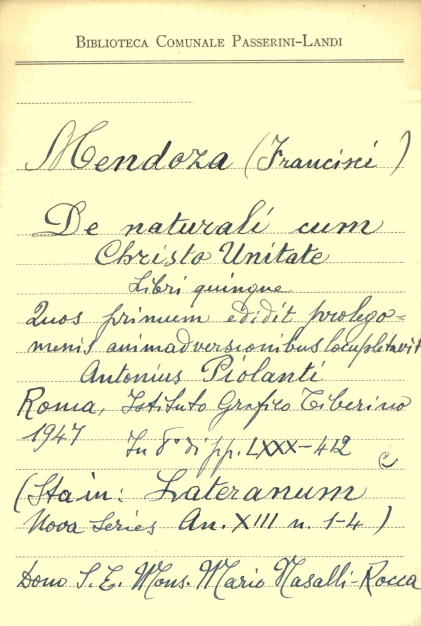 BIBLIOTECA COMUNALE PASSERINI-LANDI
Mendoza (Francisci)
De naturali cum
Christo Unitate
Libri quinque
Quos primum edidit prolego=
menis animadversionibus locupletavit
Antonius Piolanti
Roma, Istituto Grafico Tiberino
1947 In 8° di pp. LXXX-412
(Sta in: Lateranum
Nova Series An. XIII n. 1-4)
Dono S. E. Mons. Mario Nasalli-Rocca